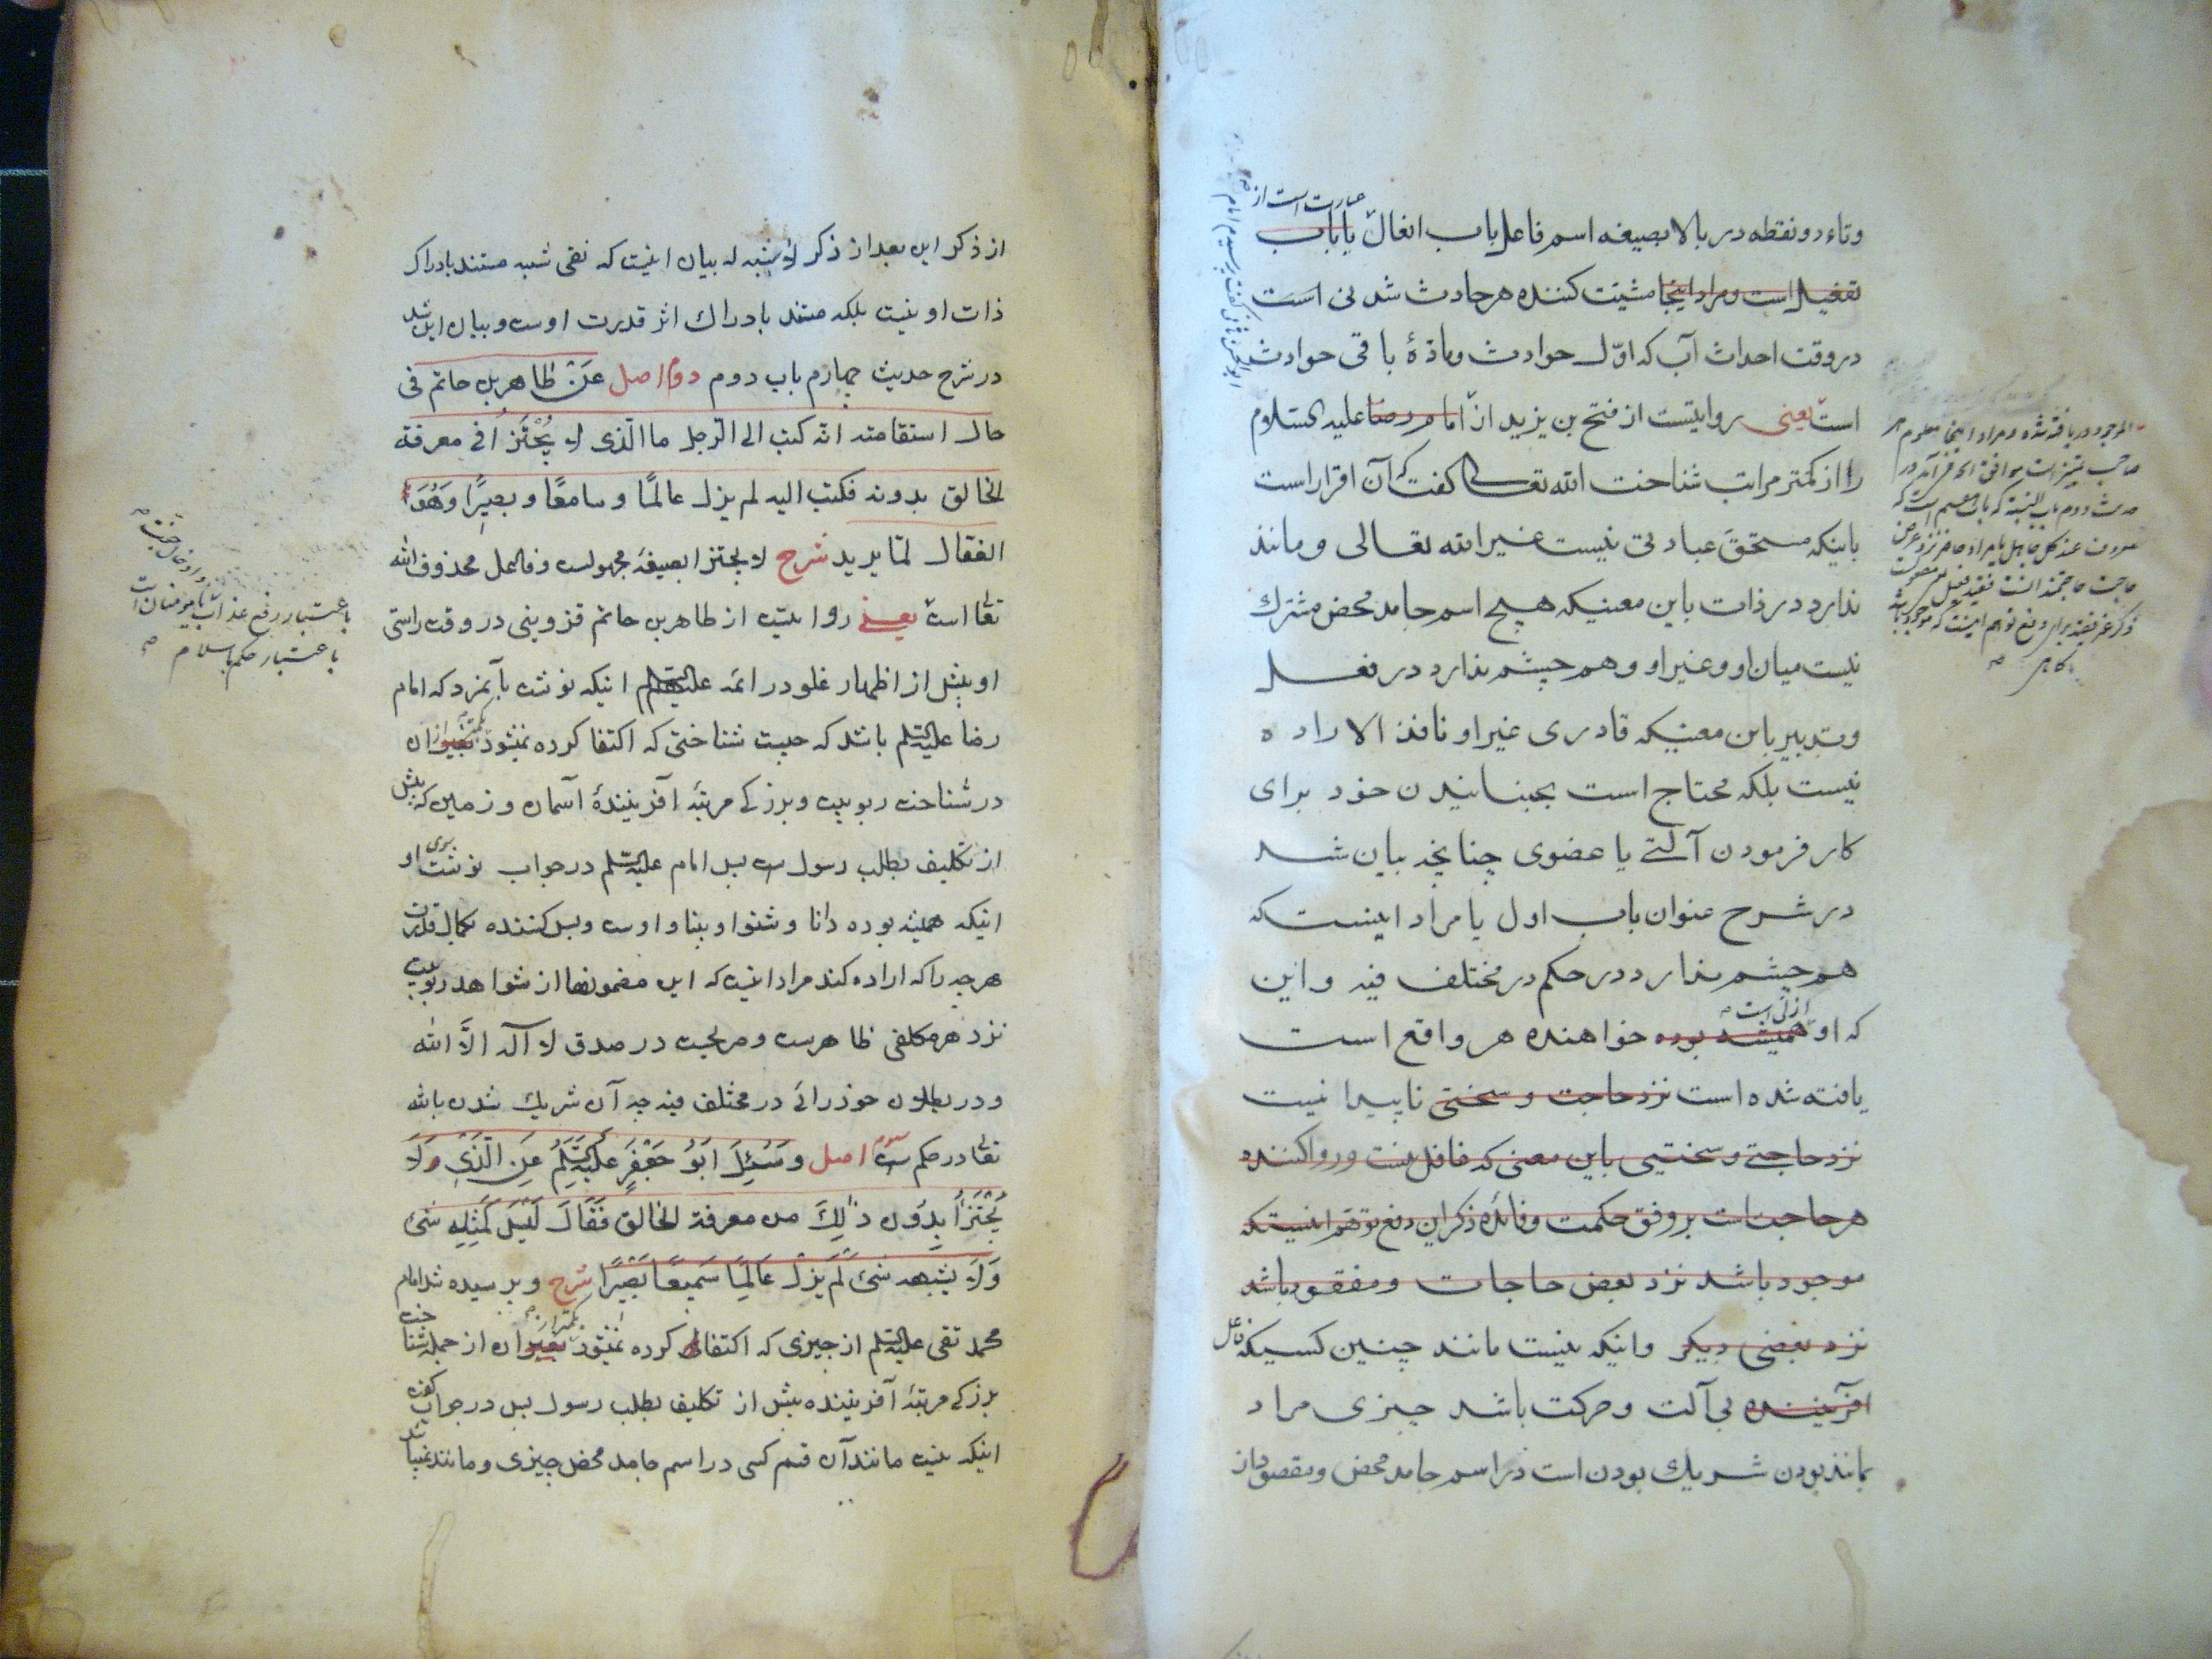 وتاء دو نقطه در بالا بصیغه اسم فاعل باب افعال یا باب
عبارت است از
تفعیل است و مراد اینجا مشیّت کننده هر حادث شدنی است
در وقت احداث آب که اوّل حوادث و مادّهٔ باقی حوادث
است یعنی روایتست از فتح بن یزید از امام رضا علیه السلام
را از کمتر مراتب شناخت الله تعالی گفت که آن اقرار است
باینکه مستحقّ عبادتی نیست غیر الله تعالی و مانند
ندارد در ذات باین معنیکه هیچ اسم جامد محض مشترک
نیست میان او و غیر او و هم چشم ندارد در فعل
و تدبیر باین معنیکه قادری غیر او نافذ الاراده
نیست بلکه محتاج است بجنبانیدن خود برای
کار فرمودن آلتی یا عضوی چنانچه بیان شد
در شرح عنوان باب اول یا مراد اینست که
هم چشم ندارد در حکم در مختلف فیه و این
که او همیشه بوده خواهنده هر واقع است
ازلی است
یافته شده است نزد حاجت و سختی ناپیدا نیست
نزد حاجتی و سختیی باین معنی که غافل نیست و رواکننده
هر حاجت است بر وفق حکمت و فائده ذکر این دفع توهّم اینستکه
موجود باشد نزد بعض حاجات و مفقود باشد
نزد بعضی دیگر و اینکه نیست مانند چنین کسیکه فاعل
آفریننده بی آلت و حرکت باشد چیزی مراد
بمانند بودن شریک بودن است در اسم جامد محض و مقصود از
از ذکر این بعد از ذکر لا شبه له بیان اینست که نفی شبه مستند بادراک
ذات او نیست بلکه مستند بادراک اثر قدرت اوست و بیان این شد
در شرح حدیث چهارم باب دوم دوم اصل عَنْ طاهر بن حاتم فی
حال استقامته انّه کتب الی الرّجل ما الّذی لا یُجْتَزَأُ فی معرفة
الخالق بدونه فکتب الیه لم یزل عالمًا و سامعًا و بصیرًا وَهُوَ
الفعّال لمّا یرید شرح لا یجتزأ بصیغهٔ مجهولست و فاعل محذوف الله
تعالی است یعنی روایتست از طاهر بن حاتم قزوینی در وقت راستی
او پیش از اظهار غلو در ائمه علیهم السلم اینکه نوشت بآنمرد که امام
رضا علیه السلم باشد که چیست شناختی که اکتفا کرده نمیشود بغیر آن
بکمتر از
در شناخت ربوبیت و بزرگی مرتبهٔ آفرینندهٔ آسمان و زمین که پیش
از تکلیف بطلب رسول است پس امام علیه السلم در جواب نوشت بسوی او
اینکه همیشه بوده دانا و شنوا و بینا و اوست و بس کننده بکمال قدرت
هر چه را که اراده کند مراد اینست که این مضمونها از شواهد ربوبیت
نزد هر مکلفی ظاهر است و صریحست در صدق لا اله الّا الله
و در بطلان خودرائی در مختلف فیه چه آن شریک شدن بالله
تعالی در حکم است سوم اصل وَسُئِلَ اَبُو جَعْفَرٍ عَلَیْهِ السَّلَمُ عَنِ الَّذِی لَا
یُجْتَزَأُ بِدُونِ ذٰلِکَ من معرفة الخالق فَقَالَ لَیْسَ کَمِثْلِهِ شئ
وَلَا یشبهه شئ لَمْ یَزَلْ عَالِمًا سَمِیعًا بَصِیرًا شرح و پرسیده شد امام
محمد تقی علیه السلم از چیزی که اکتفا کرده نمیشود بغیر آن از جمله شناخت
بکمتر از
بزرگی مرتبهٔ آفریننده پیش از تکلیف بطلب رسول پس در جواب گفت
اینکه نیست مانند آن قسم کسی در اسم جامد محض چیزی و مانند نمیباشد
باعتبار رفع عذاب
باعتبار حکم باسلام